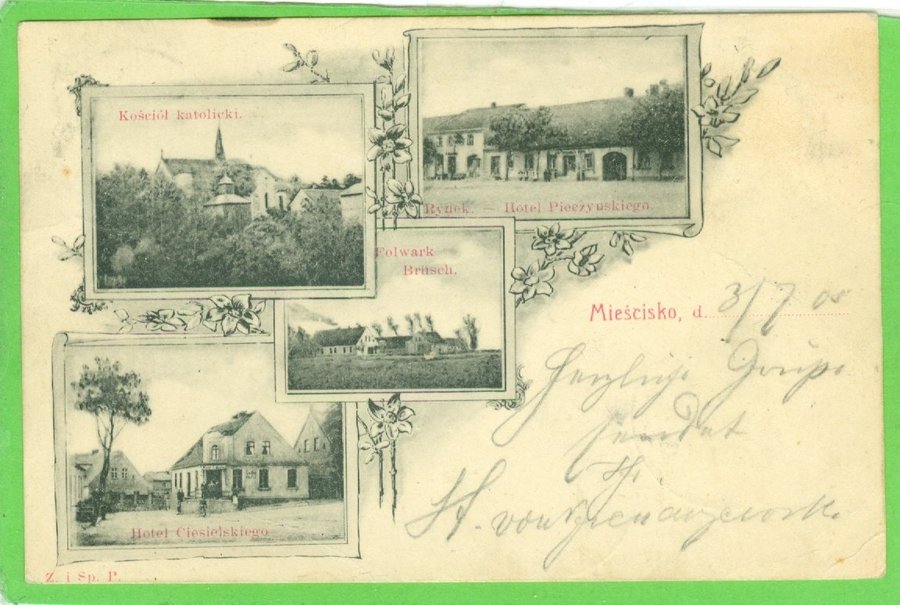 Kościół katolicki.
Rynek. — Hotel Pieczyńskiego.
Folwark
Brüsch.
Mieścisko, d. 3/7 05
Herzliche Grüße
sendet
St. von
Hotel Ciesielskiego
Z. i Sp. P.